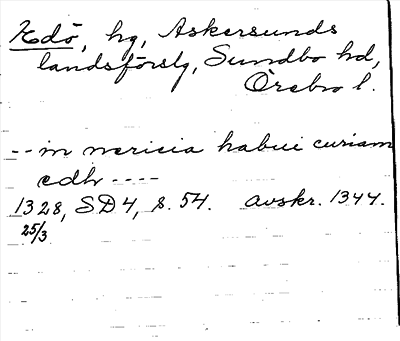 Edö, hg, Askersunds
landsförslg, Sundbo hd,
Örebro l.
-- in nericia habui curiam
edh ----
1328, SD4, s. 54. avskr. 1344.
25/3